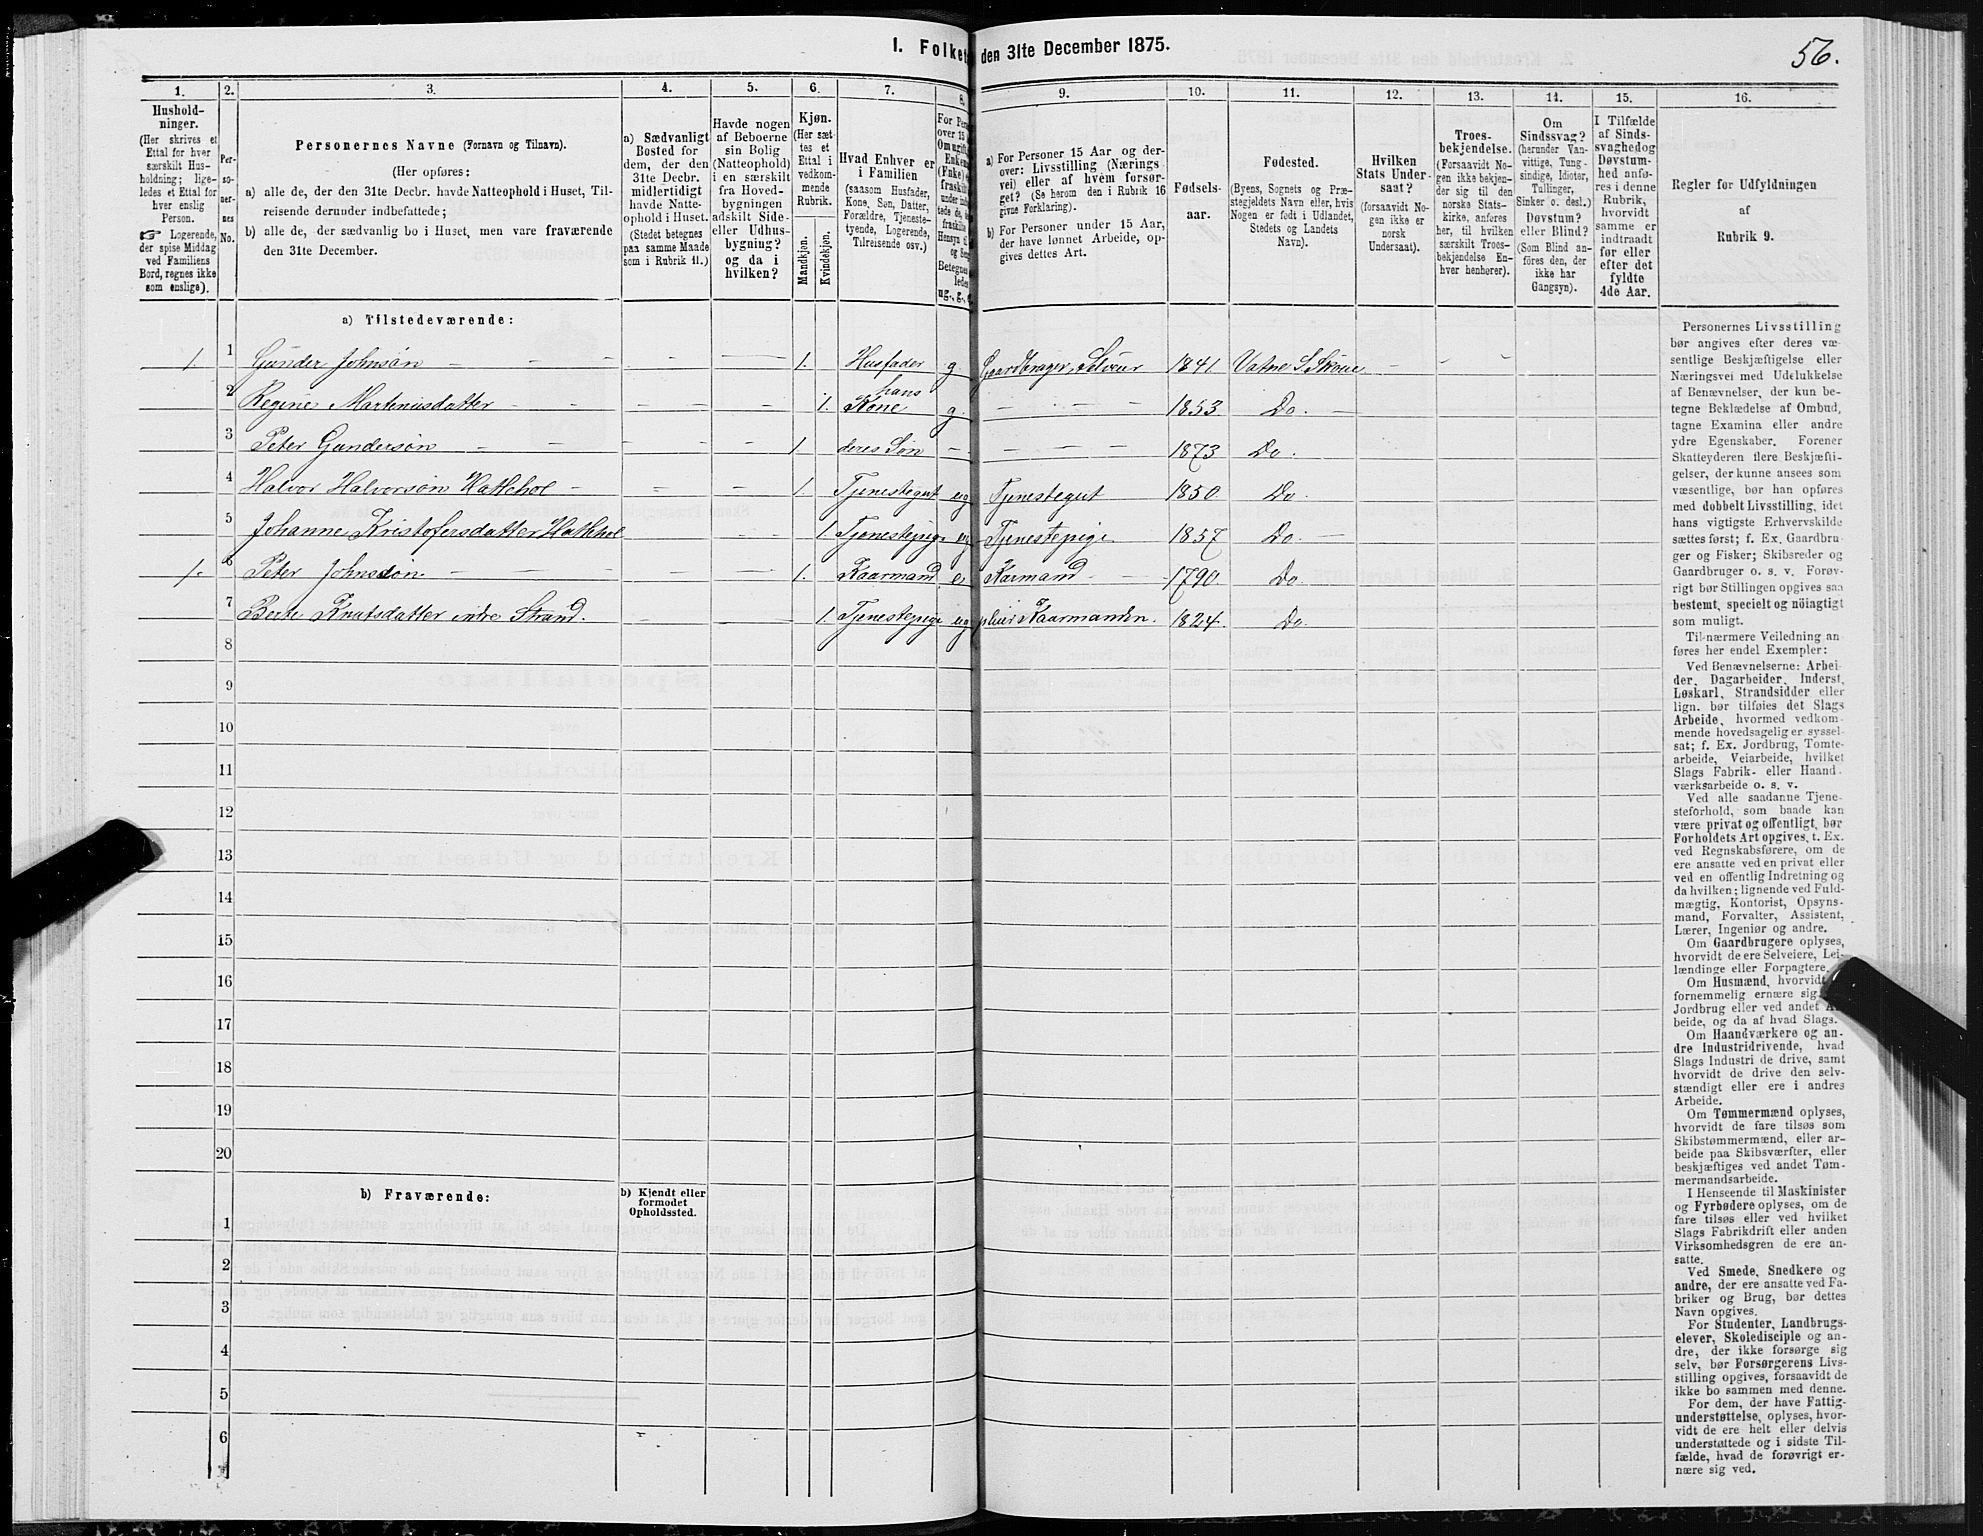 1. Folket den 31te December 1875.
56.
1. 2. 3. 4. 5. 6. 7. 8. 9. 10. 11. 12. 13. 14. 15. 16.
Hushold-
ninger.
(Her skrives et
Ettal for hver
særskilt Hus-
holdning; lige-
ledes et Ettal for
hver enslig
Person.
☞ Logerende,
der spise Middag
ved Familiens
Bord, regnes ikke
som enslige).
Per-
so-
ner-
nes
No.
Personernes Navne (Fornavn og Tilnavn).
(Her opføres:
a) alle de, der den 31te Decbr. havde Natteophold i Huset, Til-
reisende derunder indbefattede;
b) alle de, der sædvanlig bo i Huset, men vare fraværende
den 31te December.
a) Sædvanligt
Bosted for
dem, der den
31te Decbr.
midlertidigt
havde Natte-
ophold i Huset.
(Stedet betegnes
paa samme Maade
som i Rubrik 11.)
Havde nogen
af Beboerne
sin Bolig
(Natteophold)
i en særskilt
fra Hoved-
bygningen
adskilt Side-
eller Udhus-
bygning?
og da i
hvilken?
Kjøn.
(Her sæt-
tes et
Ettal i
vedkom-
mende
Rubrik.
Mandkjøn.
Kvindekjøn.
Hvad Enhver er
i Familien
(saasom Husfader,
Kone, Søn, Datter,
Forældre, Tjeneste-
tyende, Logerende,
Tilreisende osv.)
For Pers
over 15
Om ugift
Enkem
(Enke) e
fraskilt
Betegnes
ledes
ug., g., e
a) For Personer 15 Aar og der-
over: Livsstilling (Nærings-
vei) eller af hvem forsør-
get? (Se herom den i Rubrik 16
givne Forklaring).
b) For Personer under 15 Aar,
der have lønnet Arbeide, op-
gives dettes Art.
Fødsels-
aar.
Fødested.
(Byens, Sognets og Præ-
stegjeldets Navn eller, hvis
Nogen er født i Udlandet,
Stedets og Landets
Navn).
Hvilken
Stats Under-
saat?
(forsaavidt No-
gen ikke er
norsk
Undersaat).
Troes-
bekjendelse.
(Forsaavidt No-
gen ikke bekjen-
der sig til den
norske Stats-
kirke, anføres
her, til hvilken
særskilt Troes-
bekjendelse En-
hver henhører).
Om
Sindssvag?
(herunder Van-
vittige, Tung-
sindige, Idioter,
Tullinger,
Sinker o. desl.)
Døvstum?
eller Blind?
(Som Blind an-
føres den, der
ikke har
Gangsyn).
I Tilfælde
af Sinds-
svaghed og
Døvstum-
hed anfø-
res i denne
Rubrik,
hvorvidt
samme er
indtraadt
før eller
efter det
fyldte
4de Aar.
Regler for Udfyldningen
af
Rubrik 9.
a) Tilstedeværende:
1. 1 Gunder Johnsøn — — — — — 1. Husfader g Gaardbruger, Selveier 1841. Vatne S. Skoue — — —
2 Regine Martenusdatter — — — 1. hans Kone g. — — — 1853. Do. —
3 Peter Gundersøn — — — — 1. deres Søn — — — — 1873 Do.
4 Halvor Halvorsøn Hattehol — — — 1. Tjenestegut ug Tjenestegut 1850. Do.
5 Johanne Kristofersdatter Hattehol — — 1. Tjenestepige ug Tjenestepige 1857 Do. —
1. 6 Peter Johnsøn. — — — — — 1. Kaarmand e. Karmand — — 1790. Do.
7 Berte Knutsdatter indre Strand. — — — 1. Tjenestepige ug pleier Kaarmanden. 1824. Do.
8
9
10
11
12
13
14
15
16
17
18
19
20
b) Fraværende:
b) Kjendt eller
formodet
Opholdssted.
1
2
3
4
5
6
Personernes Livsstilling
bør angives efter deres væ-
sentlige Beskjæftigelse eller
Næringsvei med Udelukkelse
af Benævnelser, der kun be-
tegne Beklædelse af Ombud,
tagne Examina eller andre
ydre Egenskaber. Forener
Skatteyderen flere Beskjæfti-
gelser, der kunne ansees som
væsentlige, bør han opføres
med dobbelt Livsstilling, idet
hans vigtigste Erhvervskilde
sættes først; f. Ex. Gaardbru-
ger og Fisker; Skibsreder og
Gaardbruger o. s. v. Forøv-
rigt bør Stillingen opgives saa
bestemt, specielt og nöiagtigt
som muligt.
Til nærmere Veiledning an-
føres her endel Exempler:
Ved Benævnelserne: Arbei-
der, Dagarbeider, Inderst,
Løskarl, Strandsidder eller
lign. bør tilføies det Slags
Arbeide, hvormed vedkom-
mende hovedsagelig er syssel-
sat; f. Ex. Jordbrug, Tomte-
arbeide, Veiarbeide, hvilket
Slags Fabrik- eller Haand-
værksarbeide o. s. v.
Ved alle saadanne Tjene-
steforhold, som baade kan
være privat og offentligt, bør
Forholdets Art opgives, t. Ex.
ved Regnskabsførere, om de
ere ansatte ved en privat eller
ved en offentlig Indretning og
da hvilken; lignende ved Fuld-
mægtig, Kontorist, Opsyns-
mand, Forvalter, Assistent,
Lærer, Ingeniør og andre.
Om Gaardbrugere oplyses,
hvorvidt de ere Selveiere, Lei-
lændinge eller Forpagtere.
Om Husmænd, hvorvidt
fornemmelig ernære sig
Jordbrug eller ved andet Ar-
beide, og da af hvad Slags.
Om Haandværkere og an-
dre Industridrivende, hvad
Slags Industri de drive, samt
hvorvidt de drive den selv-
stændigt eller ere i andres
Arbeide.
Om Tømmermænd oplyses,
hvorvidt de fare tilsøs som
Skibstømmermænd, eller ar-
beide paa Skibsværfter, eller
beskjæftiges ved andet Tøm-
mermandsarbeide.
I Henseende til Maskinister
og Fyrbødere oplyses, om de
fare tilsøs eller ved hvilket
Slags Fabrikdrift eller anden
Virksomhedsgren de ere an-
satte.
Ved Smede, Snedkere og
andre, der ere ansatte ved Fa-
briker og Brug, bør dettes
Navn opgives.
For Studenter, Landbrugs-
elever, Skoledisciple og an-
dre, der ikke forsørge sig
selv, bør Forsørgerens Livs-
stilling opgives, forsaavidt de
ikke bo sammen med denne.
For dem, der have Fattig-
understøttelse, oplyses, hvor-
vidt de ere helt eller delvis
understøttede og i sidste Til-
fælde, hvad de forøvrigt er-
nære sig ved.